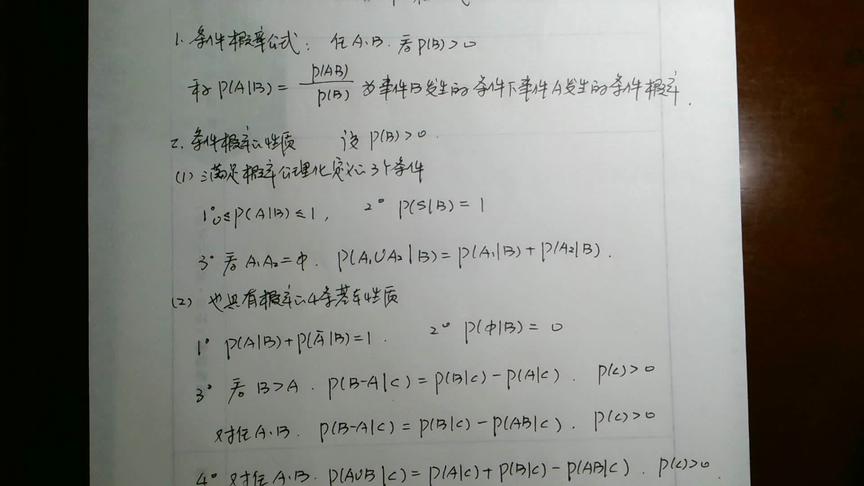 1. 条件概率公式: 任A、B. 若P(B)>0
称P(A|B) = P(AB)/P(B) 为事件B发生的条件下事件A发生的条件概率.
2. 条件概率的性质 设P(B)>0.
(1) 满足概率公理化定义的3个条件
1° 0≤P(A|B)≤1, 2° P(S|B)=1
3° 若A₁A₂=φ. P(A₁∪A₂|B)=P(A₁|B)+P(A₂|B).
(2) 也具有概率的4条基本性质
1° P(A|B)+P(Ā|B)=1. 2° P(φ|B)=0
3° 若B>A. P(B-A|C)=P(B|C)-P(A|C). P(C)>0
对任A、B. P(B-A|C)=P(B|C)-P(AB|C). P(C)>0
4° 对任A、B. P(A∪B|C)=P(A|C)+P(B|C)-P(AB|C). P(C)>0.